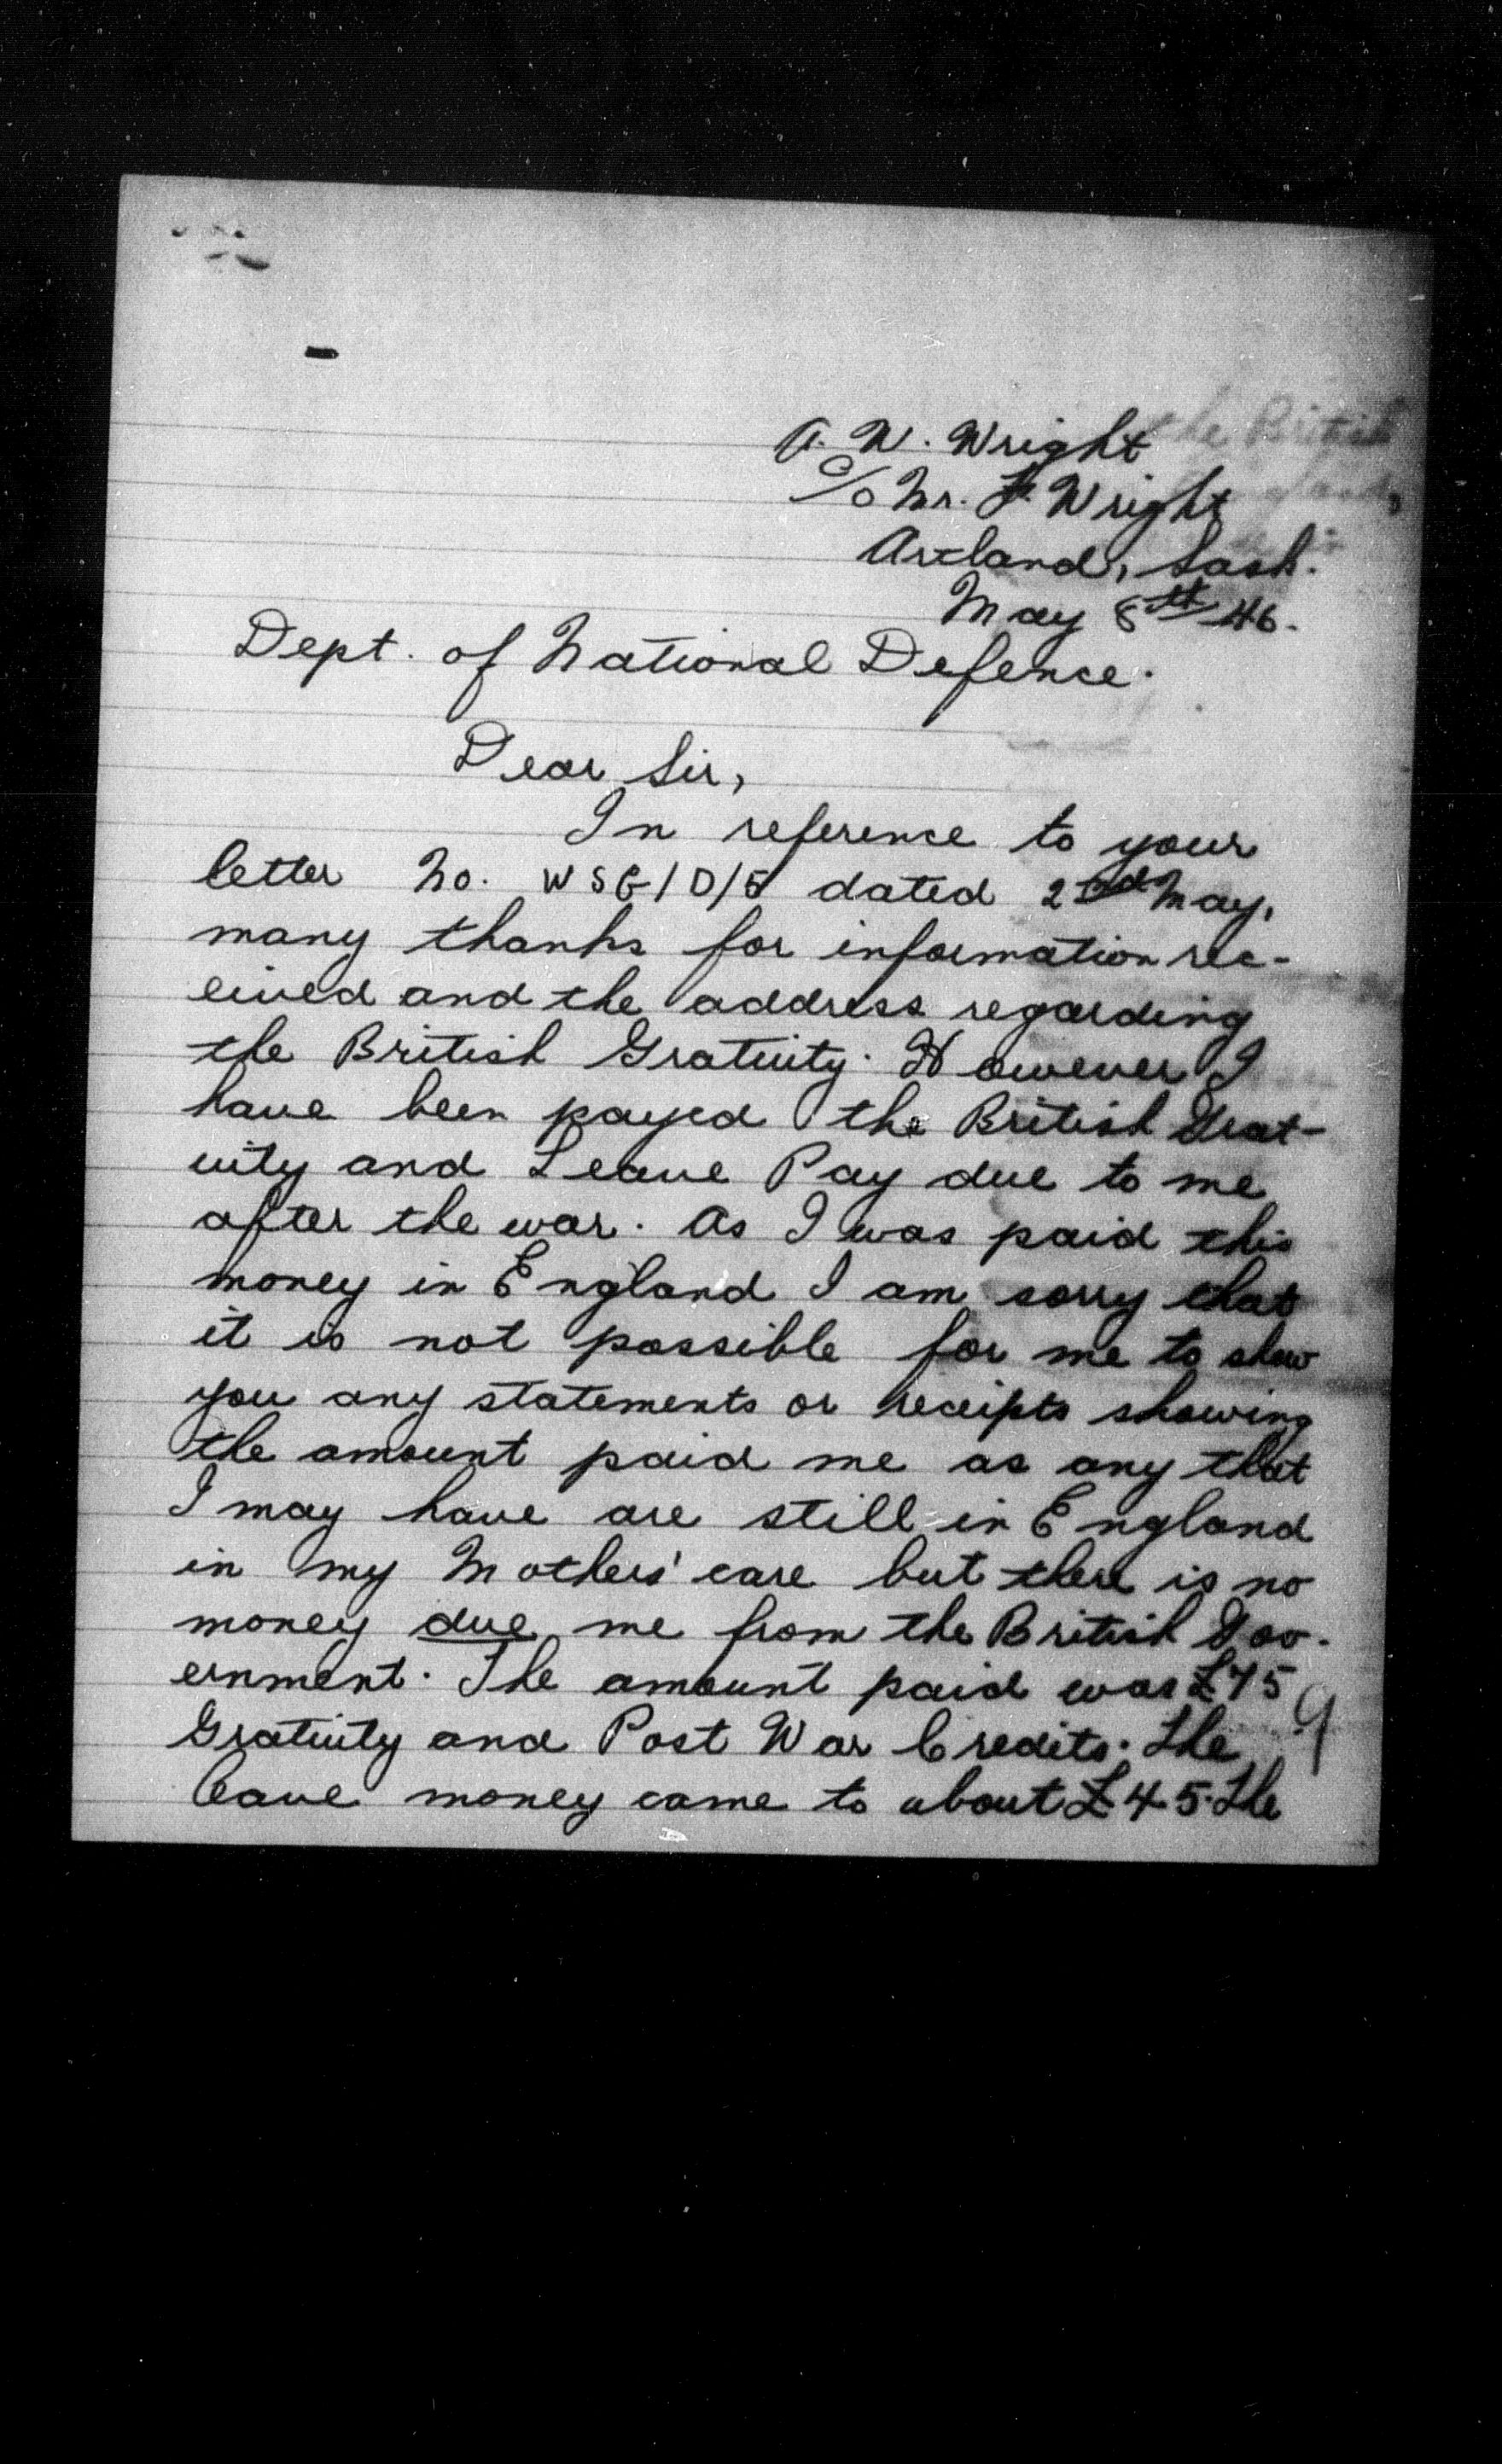 A. W. Wright
c/o Mr. F. Wright
Artland, Sask.
May 8th 46.
Dept. of National Defence.
Dear Sir,
In reference to your
letter No. WSG/D/5 dated 2nd May,
many thanks for information rec-
eived and the address regarding
the British Gratuity. However I
have been payed the British Grat-
uity and Leave Pay due to me
after the war. As I was paid this
money in England I am sorry that
it is not possible for me to show
you any statements or receipts showing
the amount paid me as any that
I may have are still in England
in my Mothers' care but there is no
money due me from the British Gov-
ernment. The amount paid was £75
Gratuity and Post War Credits. The
leave money came to about £45. The
9